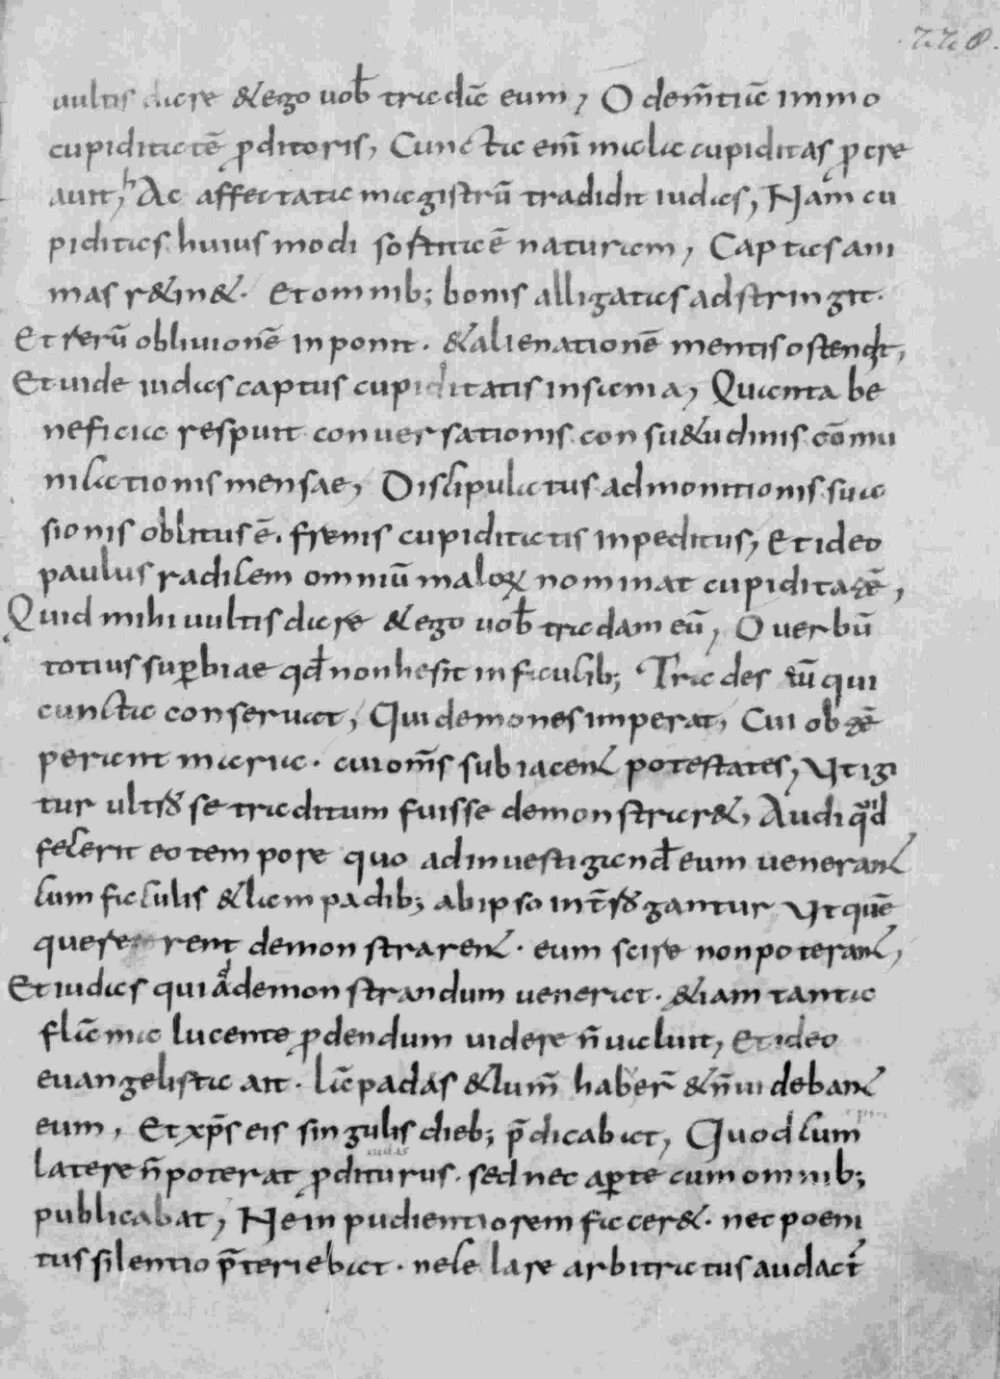 220.
uultis dare & ego uob̄ tradā eum, O dem̄tiā immo
cupiditatē p̱ditoris, Cuncta enī mala cupiditas p̱cre
auit, Ac affectata magistrū tradidit iudas, Nam cu
piditas huius modi sortita ē naturam, Captas ani
mas r&in&. Et omnib; bonis alligatas adstringit.
Et rerū obliuionē inponit. & alienationē mentis ostendit,
Et uide iudas captus cupiditatis insania, Quanta be
neficia respuit conuersationis consu&udinis cōmu
nicationis mensae, Discipulatus admonitionis sua
sionis oblitus ē. frenis cupiditatis inpeditus, Et ideo
paulus radicem omniū maloꝝ nominat cupiditatē,
Quid mihi uultis dare & ego uob̄ tradam eū, O uerbū
totius sup̱biae qd̄ non hesit in faucib; Trades eū qui
cuncta conseruat, Qui demones imperat, Cui obtē
perant maria. cui om̄s subiacent potestates, Ut igi
tur ultro se traditum fuisse demonstrar&, Audi quid
fecerit eo tempore quo ad inuestigand̄ eum uenerant
cum faculis & lampadib; ab ipso int̄rogantur Ut quē
quererent demonstrarent. eum scire non poterant,
Et iudas qui ad demonstrandum uenerat. & iam tanta
flāma lucente p̱dendum uidere n̄ ualuit, Et ideo
euangelista ait. lāpadas & lum̄ haber̄ & n̄ uidebant
eum, Et xp̄s eis singulis dieb; p̄dicabat, Quod cum
latere n̄ poterat p̱diturus. sed nec ap̱te cum omnib;
iudas
publicabat, Ne inpudentiorem facer&. nec poeni
tus silentio p̄teriebat. ne celare arbitratus audact̄